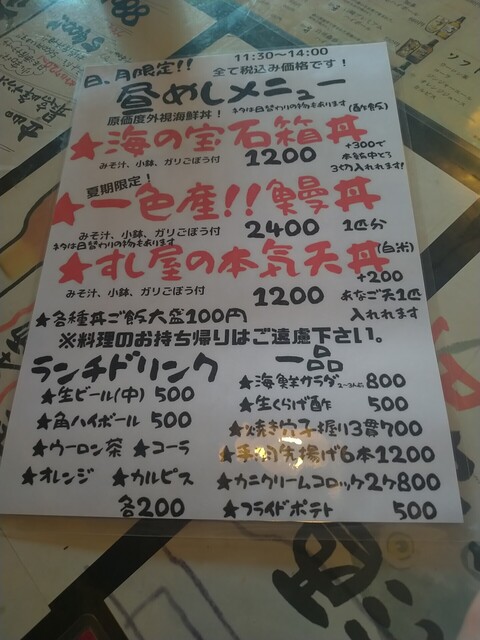 11:30～14:00
日、月限定!!
全て税込み価格です！
昼めしメニュー
原価度外視海鮮丼！
ネタは日替わりの物もあります
(酢飯)
★海の宝石箱丼
みそ汁、小鉢、ガリごぼう付
1200
+300で
本鮪中とろ
3切入れれます!
夏期限定！
★一色産!!鰻丼
みそ汁、小鉢、ガリごぼう付
2400
1匹分
ネタは日替わりの物もあります
(白米)
★すし屋の本気天丼
みそ汁、小鉢、ガリごぼう付
1200
+200
あなご天1匹
入れれます
★各種丼ご飯大盛100円
※料理のお持ち帰りはご遠慮下さい。
ランチドリンク
★生ビール(中) 500
★角ハイボール 500
★ウーロン茶 ★コーラ
★オレンジ ★カルピス
各200
一品
★海鮮サラダ 2～3人に 800
★生くらげ酢 500
★焼き穴子握り3貫700
★手羽先揚げ6本1200
★カニクリームコロッケ2ケ800
★フライドポテト 500
ソフト